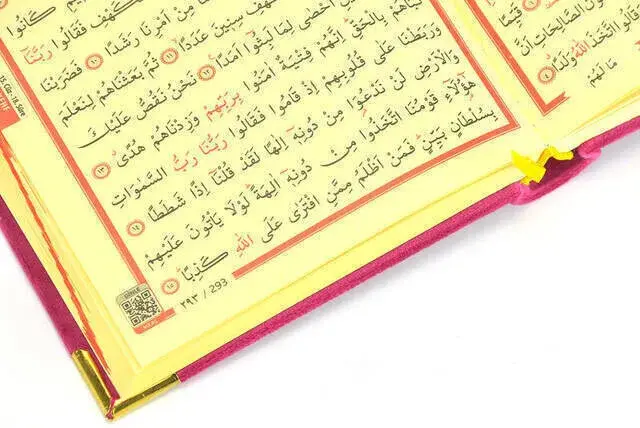 قَيِّمًا
ونَ الصَّالِحَاتِ اَنَّ
قَالُوا اتَّخَذَ اللّٰهُ وَلَدًا ٤
مَا لَهُمْ
كَانُوا
كَهْفِ فَقَالُوا رَبَّنَا
مِنْ اَمْرِنَا رَشَدًا ١٠ فَضَرَبْنَا
كَهْفِ سِنِينَ عَدَدًا ١١ ثُمَّ بَعَثْنَاهُمْ لِنَعْلَمَ
اَحْصٰى لِمَا لَبِثُوا اَمَدًا ١٢ نَحْنُ نَقُصُّ عَلَيْكَ
نَبَاَهُمْ بِالْحَقِّ اِنَّهُمْ فِتْيَةٌ اٰمَنُوا بِرَبِّهِمْ وَزِدْنَاهُمْ هُدًى ١٣
وَرَبَطْنَا عَلٰى قُلُوبِهِمْ اِذْ قَامُوا فَقَالُوا رَبُّنَا رَبُّ السَّمٰوَاتِ
وَالْاَرْضِ لَنْ نَدْعُوَا مِنْ دُونِهِ اِلٰهًا لَقَدْ قُلْنَا اِذًا شَطَطًا ١٤
هٰٓؤُلَاءِ قَوْمُنَا اتَّخَذُوا مِنْ دُونِهِ اٰلِهَةً لَوْلَا يَأْتُونَ عَلَيْهِمْ
بِسُلْطَانٍ بَيِّنٍ فَمَنْ اَظْلَمُ مِمَّنِ افْتَرٰى عَلَى اللّٰهِ كَذِبًا ١٥
٢٩٣ / 293
15. Cüz - 18. Sûre